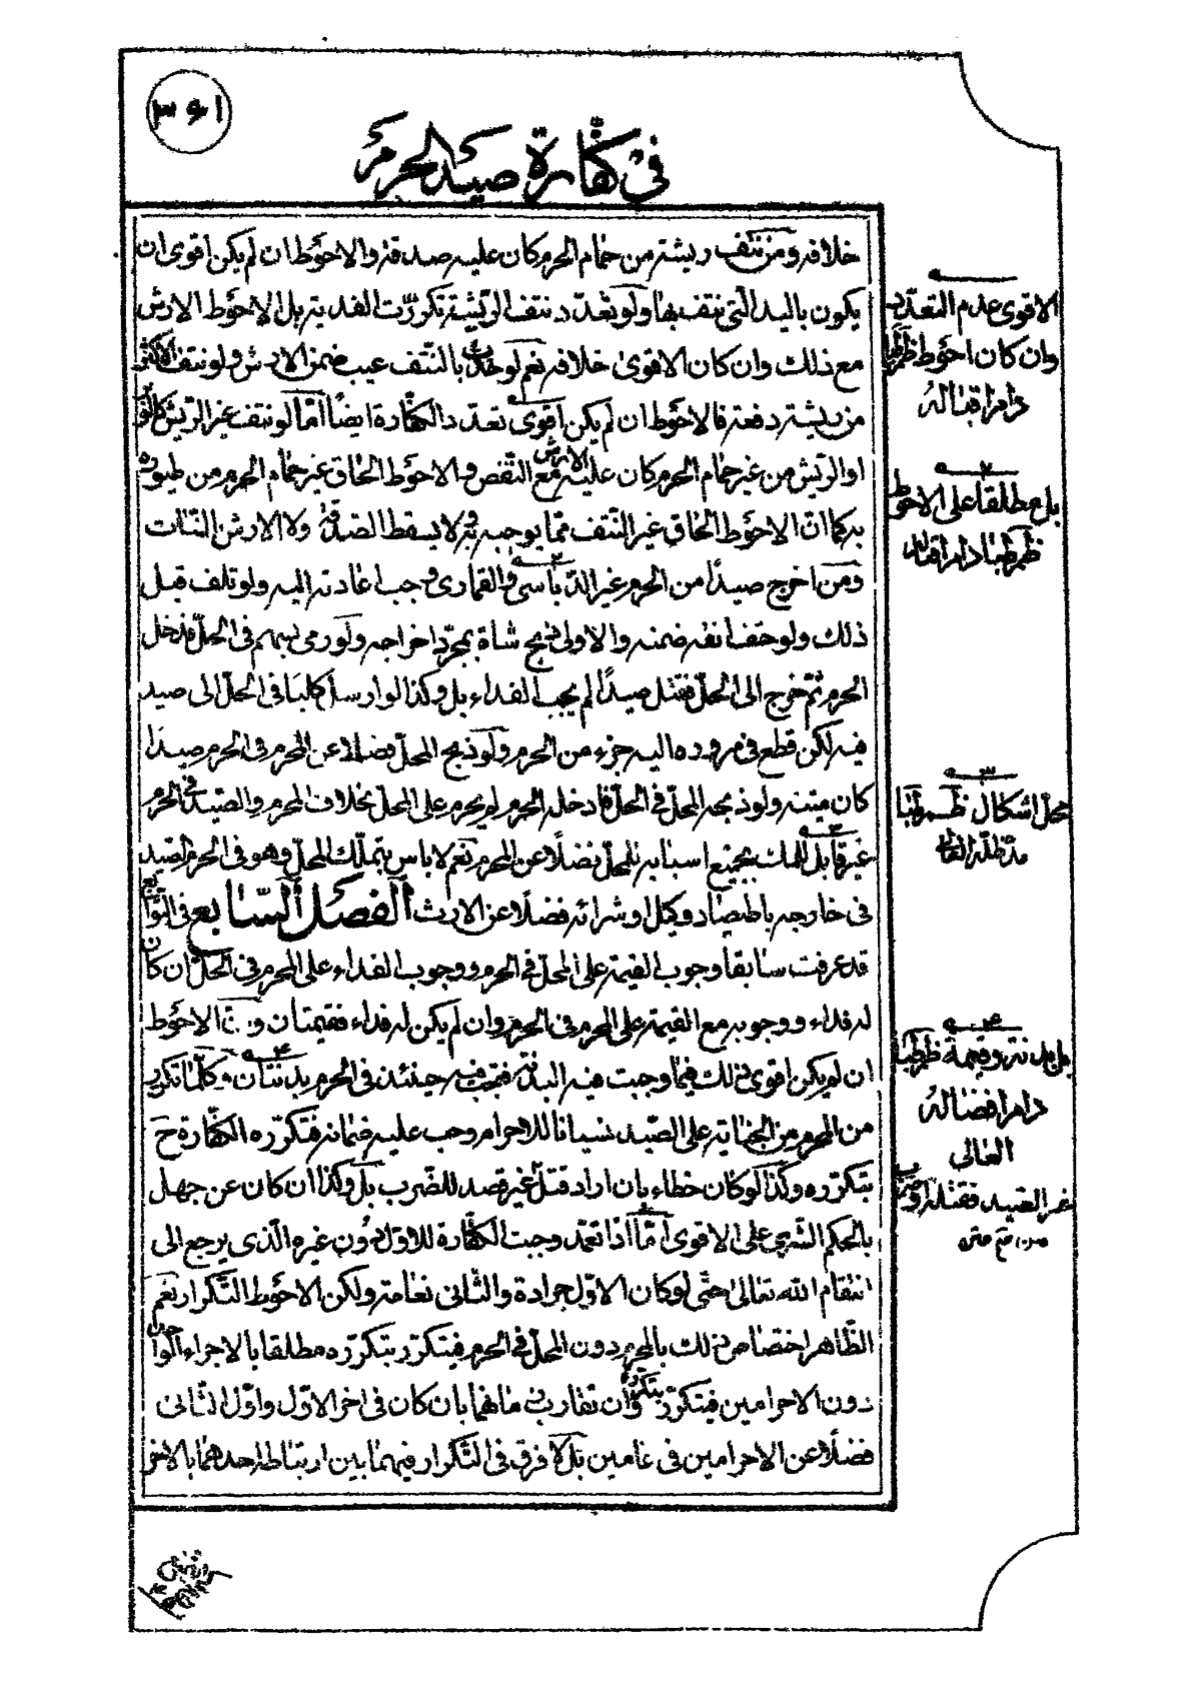 ٣٦١
في كفّارة صيد الحرم
خلافه ومن نتف ريشة من حمام الحرم كان عليه صدقة والاحوط ان لم يكن اقوى ان
يكون باليد الّتي نتف بها ولو تعدّد نتف الرّيشة تكرّرت الفدية بل الاحوط الارش
مع ذلك وان كان الاقوىٰ خلافه نعم لو حدث بالنّتف عيب ضمن الارش ولو نتف الاكثر
من ريشة دفعة فالاحوط ان لم يكن اقوى تعدّد الكفّارة ايضاً امّا لو نتف غير الرّيش كالوبر
او الرّيش من غير حمام الحرم كان عليه الارش مع النّقص والاحوط الحاق غير حمام الحرم من طيوره
به كما انّ الاحوط الحاق غير النّتف ممّا يوجبه به ولا يسقط الصّدقة ولا الارش النّبات
ومن اخرج صيداً من الحرم غير الدّباسي والقماري وجب اعادته اليه ولو تلف قبل
ذلك ولو حتف انفه ضمنه والاولى ذبح شاة بمجرّد اخراجه ولو رمى بسهم في الحلّ فدخل
الحرم ثمّ خرج الى الحلّ فقتل صيداً لم يجب الفداء بل وكذا لو ارسل كلباً في الحلّ الى صيد
فيه لكن قطع في مروره اليه جزء من الحرم ولو ذبح المحلّ فضلا عن المحرم في الحرم صيداً
كان ميتة ولو ذبحه المحلّ في الحلّ فادخله الحرم لم يحرم على المحلّ بخلاف المحرم والصّيد في الحرم
غير قابل للملك بجميع اسبابه للمحلّ فضلًا عن المحرم نعم لا باس بتملّك المحلّ وهو في الحرم لصيد
في خارجه باصطياد وكيل او شرائه فضلًا عن الارث الفصل السّابع في التّوابع
قد عرفت سابقا وجوب القيمة على المحلّ في الحرم ووجوب الفداء على المحرم في الحلّ ان كان
له فداء ووجوبه مع القيمة على المحرم في الحرم وان لم يكن له فداء فقيمتان الاحوط
ان لم يكن اقوى ذلك فيما وجبت فيه البدنة فتجب فيه حينئذ في الحرم بدنتان وكلّما تكرر
من المحرم من الجناية على الصّيد نسيانا للاحرام وجب عليه ضمانه فتكرّره الكفّارة ح
بتكرّره وكذا لو كان خطاء بان اراد قتل غير قصد للضّرب بل وكذا ان كان عن جهل
بالحكم الشّرعي على الاقوى امّا اذا تعمّد وجبت الكفّارة للاوّل دون غيره الّذي يرجع الى
انتقام الله تعالىٰ حتّى لو كان الاوّل جرادة والثّاني نعامة ولكن الاحوط التّكرار نعم
الظّاهر اختصاص ذلك بالمحرم دون المحلّ في الحرم فيتكرّر بتكرّره مطلقا بالاحرام الواحد
دون الاحرامين فيتكرّر بتكرّره وان تقارب زمانهما بان كان في اخر الاوّل واوّل الثّاني
فضلًا عن الاحرامين في عامين بل لا فرق في التّكرار فيهما بين ارتباط احدهما بالاخر
١
الاقوى عدم التعدّد
وان كان احوط ظم طبا
دام اقباله
٢
بل مطلقا على الاحوط
ظم طبا دام اقباله
٣
محلّ اشكال ظم طبا
مد ظلّه العالى
٤
بل بدنة وقيمة ظم طبا
دام افضاله
العالى
غير الصيد فقتله او